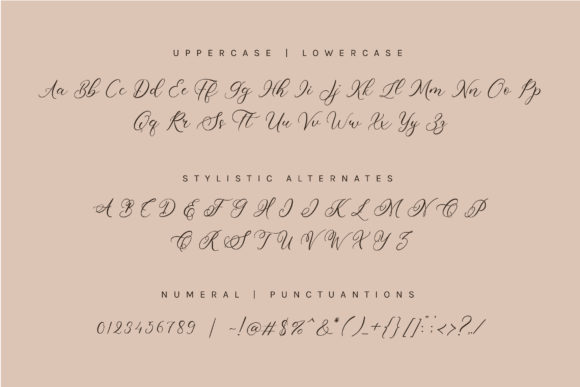 UPPERCASE | LOWERCASE
Aa Bb Cc Dd Ee Ff Gg Hh Ii Jj Kk Ll Mm Nn Oo Pp
Qq Rr Ss Tt Uu Vv Ww Xx Yy Zz
STYLISTIC ALTERNATES
A B C D E F G H I J K L M N O P
Q R S T U V W X Y Z
NUMERAL | PUNCTUANTIONS
0123456789 | ~!@#$%^&*()_+{}[]:;"'<>?,./